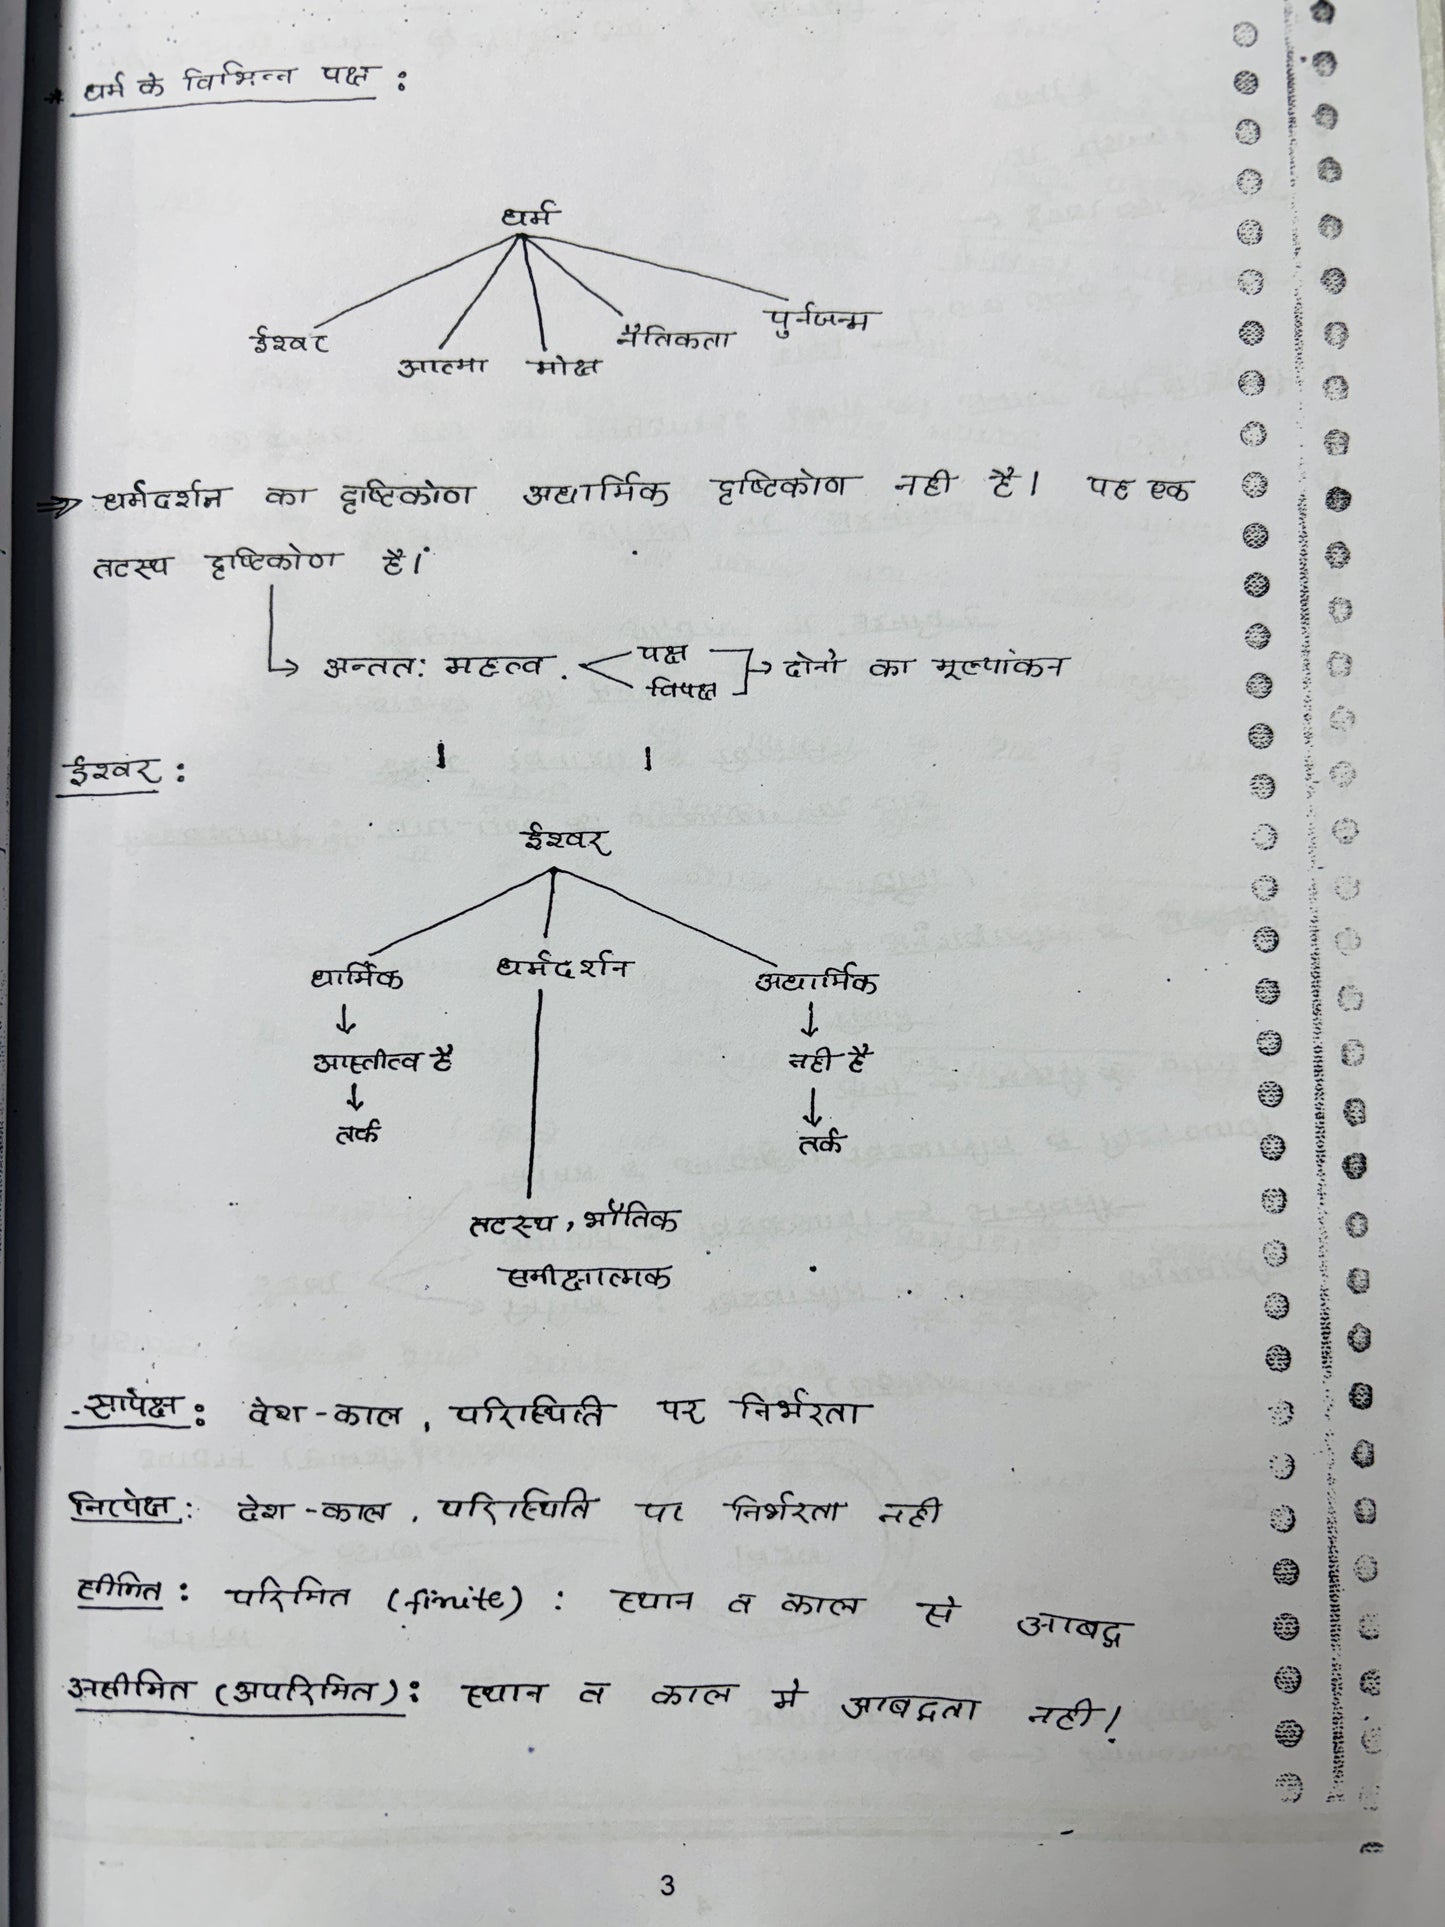 * धर्म के विभिन्न पक्ष :
धर्म
ईश्वर आत्मा मोक्ष नैतिकता पुर्नजन्म
⇒ धर्मदर्शन का दृष्टिकोण अधार्मिक दृष्टिकोण नही है। यह एक
तटस्थ दृष्टिकोण है।
→ अन्तत: महत्व . < पक्ष विपक्ष ] → दोनो का मूल्यांकन
ईश्वर :
ईश्वर
धार्मिक धर्मदर्शन अधार्मिक
↓ ↓
आस्तीत्व है नही है
↓ ↓
तर्क तर्क
तटस्थ, भौतिक
समीक्षात्मक
सापेक्ष : देश-काल, परिस्थिति पर निर्भरता
निरपेक्ष : देश-काल, परिस्थिति पर निर्भरता नही
सीमित : परिमित (finite) : स्थान व काल से आबद्ध
असीमित (अपरिमित) : स्थान व काल मे आबद्धता नही।
3